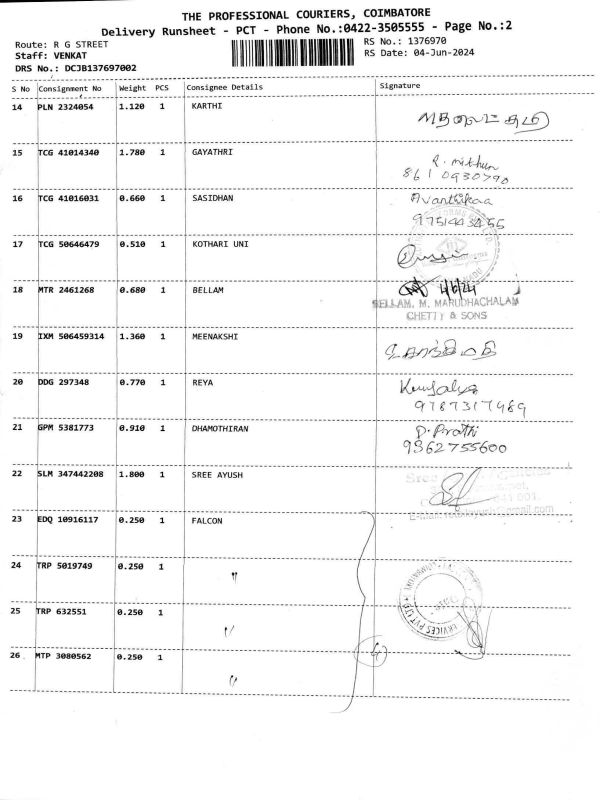 THE PROFESSIONAL COURIERS, COIMBATORE
Delivery Runsheet - PCT - Phone No.:0422-3505555 - Page No.:2
Route: R G STREET
RS No.: 1376970
Staff: VENKAT
RS Date: 04-Jun-2024
DRS No.: DCJB137697002
S No Consignment No Weight PCS Consignee Details Signature
14 PLN 2324054 1.120 1 KARTHI
15 TCG 41014340 1.780 1 GAYATHRI R. mithun
8610930790
16 TCG 41016031 0.660 1 SASIDHAN Avanthikaa
9751443455
17 TCG 50646479 0.510 1 KOTHARI UNI
18 MTR 2461268 0.680 1 BELLAM 4/6/24
SELLAM. M. MARUDHACHALAM
CHETTY & SONS
19 IXM 506459314 1.360 1 MEENAKSHI
20 DDG 297348 0.770 1 REYA Kausalya
9787317489
21 GPM 5381773 0.910 1 DHAMOTHIRAN D. Prathi
9362755600
22 SLM 347442208 1.800 1 SREE AYUSH Sree
641 001.
23 EDQ 10916117 0.250 1 FALCON
24 TRP 5019749 0.250 1 "
25 TRP 632551 0.250 1 "
26 MTP 3080562 0.250 1 "